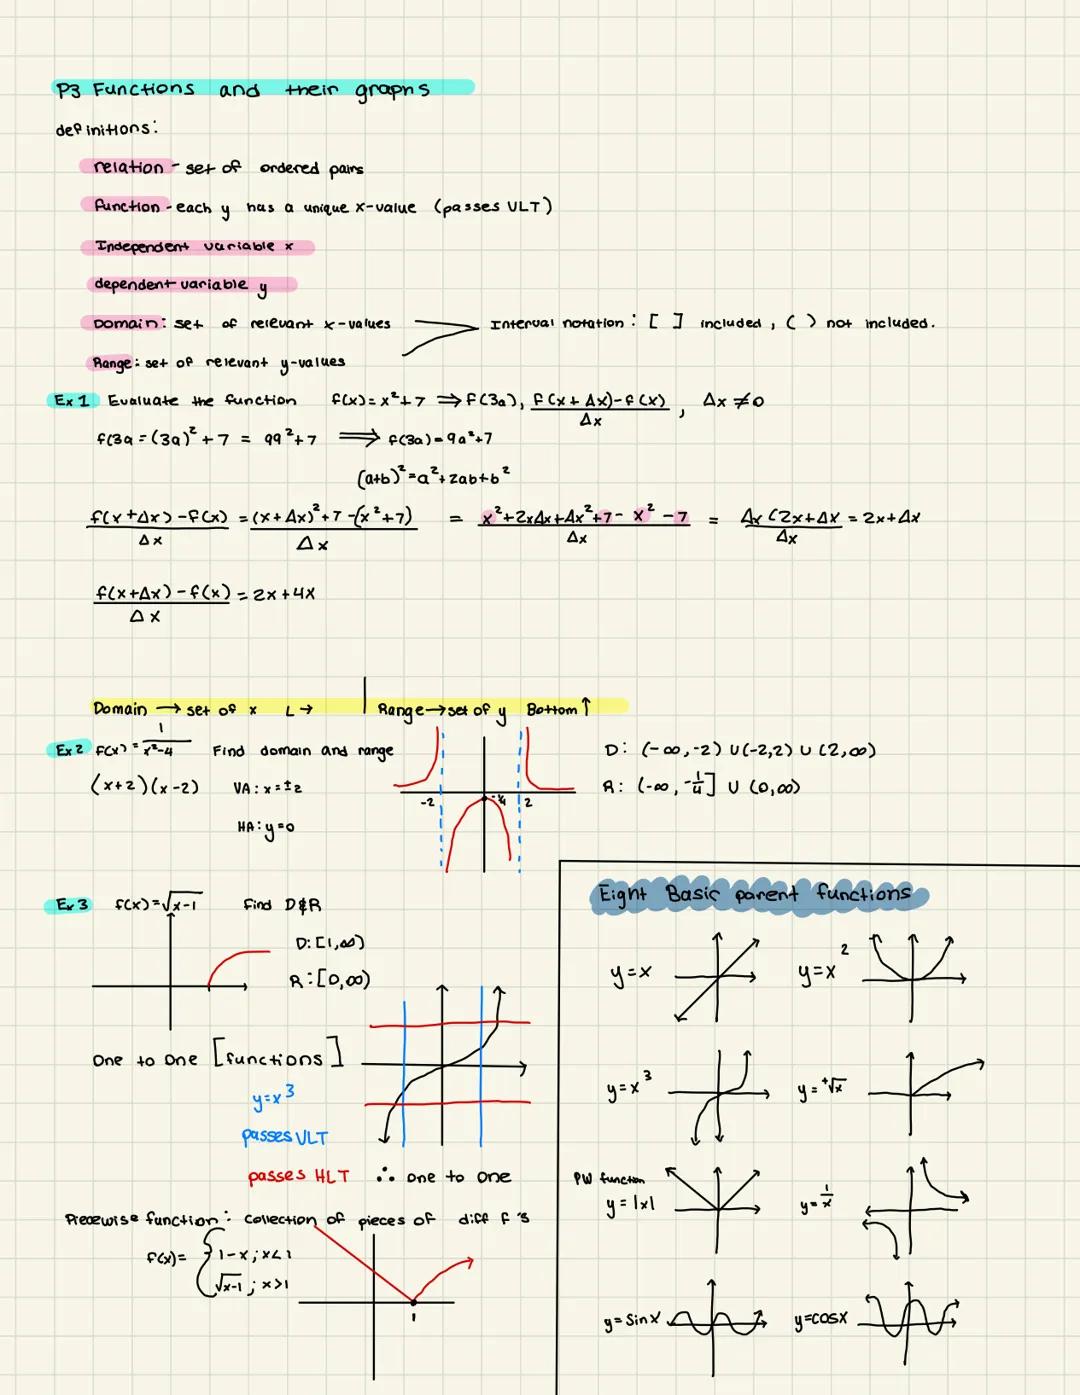 P3 Functions and their graphs
definitions:
relation - set of ordered pairs
function - each y has a unique x-value (passes VLT)
Independent variable x
dependent variable y
Domain: set of relevant x-values
Interval notation: [ ] included, ( ) not included.
Range: set of relevant y-values
Ex 1 Evaluate the function f(x)=x²+7 ⟹ f(3a), f(x+Δx)-f(x)/Δx, Δx≠0
f(3a = (3a)²+7 = 99²+7 ⟹ f(3a)=9a²+7
(a+b)²=a²+2ab+b²
f(x+Δx)-f(x)/Δx = (x+Δx)²+7-(x²+7)/Δx = x²+2xΔx+Δx²+7-x²-7/Δx = Δx(2x+Δx/Δx = 2x+Δx
f(x+Δx)-f(x)/Δx = 2x+4x
Domain → set of x L→ | Range→set of y Bottom↑
Ex 2 f(x)=1/x²-4 Find domain and range
(x+2)(x-2) VA: x=±2
HA: y=0
-2 -¼ 2
D: (-∞,-2) ∪ (-2,2) ∪ (2,∞)
R: (-∞,-¼] ∪ (0,∞)
Ex 3 f(x)=√x-1 Find D&R
D: [1,∞)
R: [0,∞)
One to One [functions]
y=x³
passes VLT
passes HLT ∴ one to one
Piecewise function: collection of pieces of diff f's
f(x)= { 1-x; x<1
√x-1; x>1
1
Eight Basic parent functions
y=x y=x²
y=x³ y=+√x
PW function
y=|x| y=1/x
y=sinx y=cosx